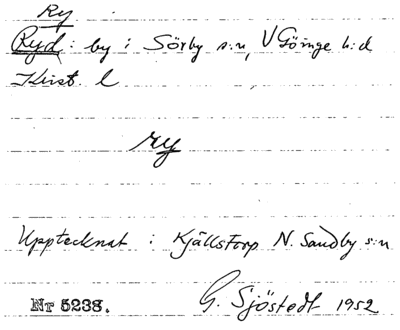 Ry
Ryd: by i Sörby s:n, V Göinge h:d
Krist. l
ry
Upptecknat i Kjällstorp N. Sandby s:n
Nr 5238. G. Sjöstedt 1952